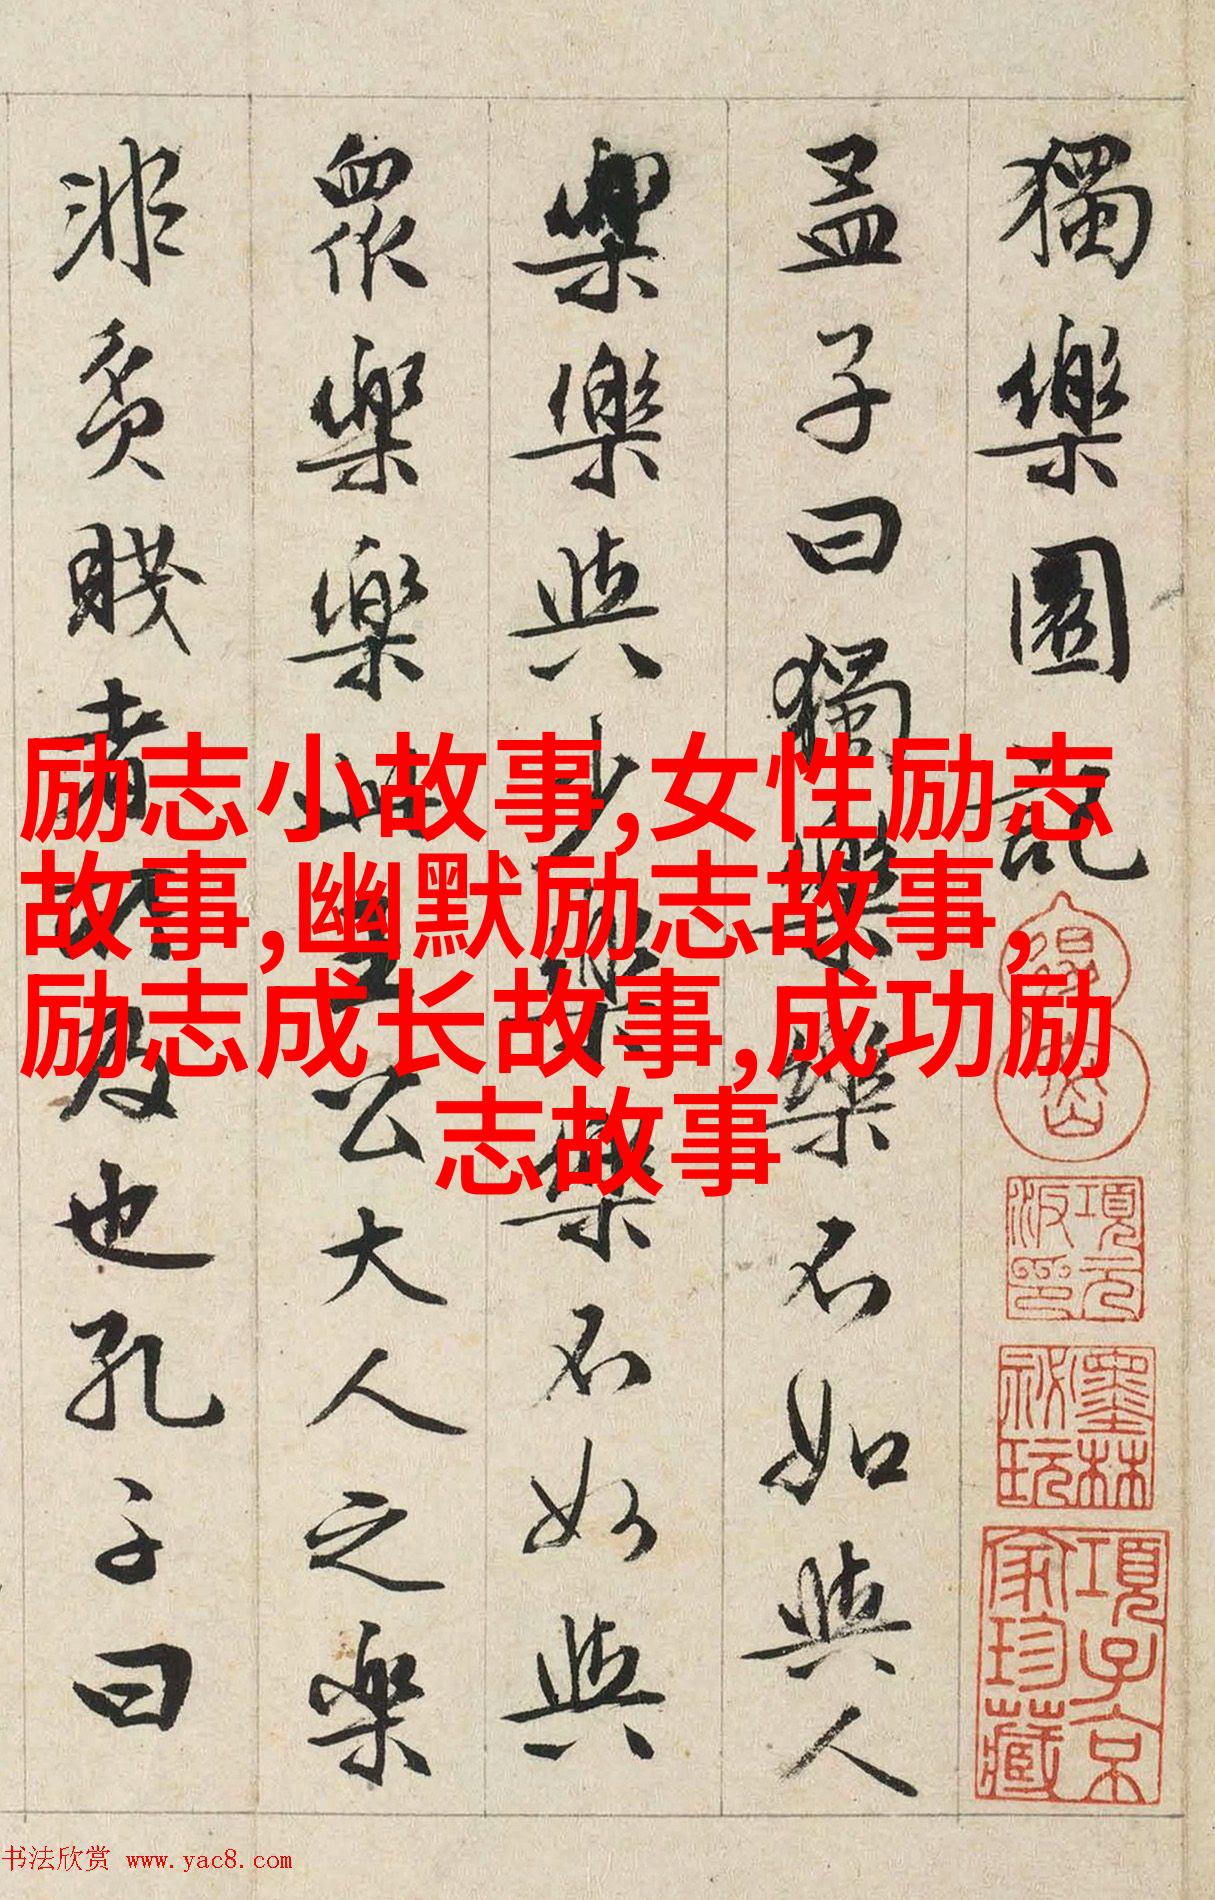 獨樂園記
孟子曰獨樂樂不如與人
樂樂與少樂樂不如與
眾樂樂此王公大人之樂
非貧賤者所及也孔子曰
項元汴印
墨林祕玩
項子京家珍藏
励志小故事,女性励志
故事,幽默励志故事,
励志成长故事,成功励
志故事
书法欣赏 www.yac8.com